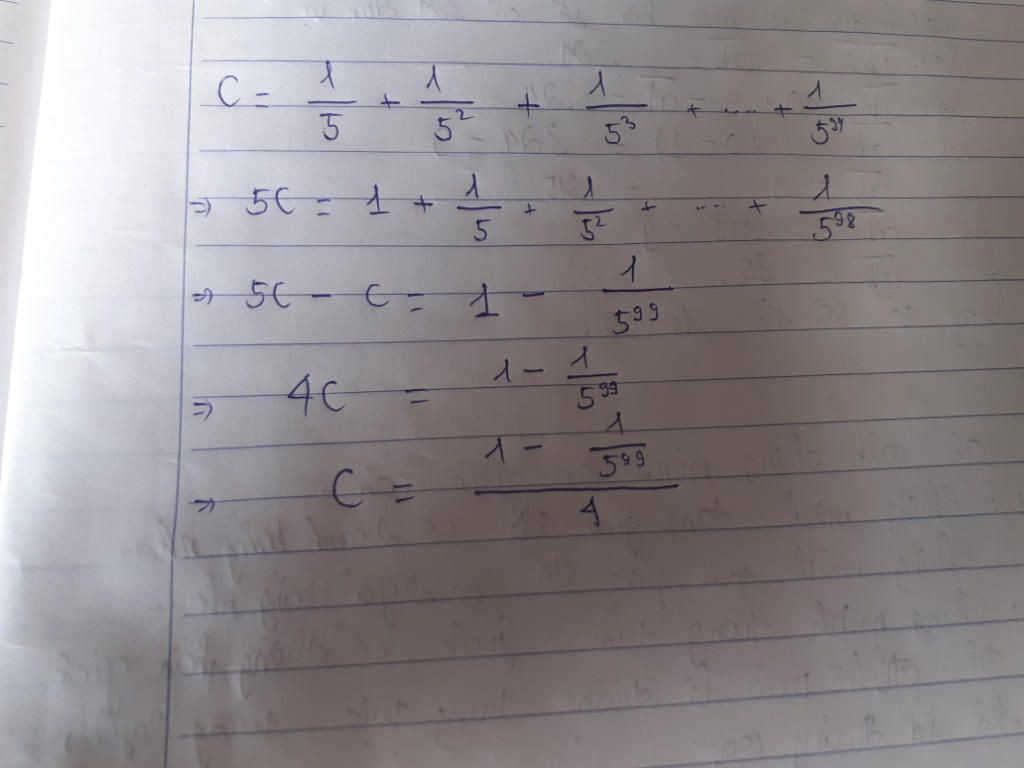 C = 1/5 + 1/5² + 1/5³ + .... + 1/5⁹⁹
=> 5C = 1 + 1/5 + 1/5² + .... + 1/5⁹⁸
=> 5C - C = 1 - 1/5⁹⁹
=> 4C = 1 - 1/5⁹⁹
=> C = (1 - 1/5⁹⁹)/4